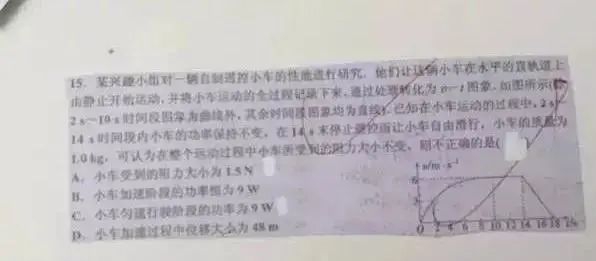 15. 某兴趣小组对一辆自制遥控小车的性能进行研究. 他们让这辆小车在水平的直轨道上
由静止开始运动, 并将小车运动的全过程记录下来, 通过处理转化为 v-t 图象, 如图所示(除
2 s~10 s 时间段图象为曲线外, 其余时间段图象均为直线). 已知在小车运动的过程中, 2 s~
14 s 时间段内小车的功率保持不变, 在 14 s 末停止遥控而让小车自由滑行, 小车的质量为
1.0 kg, 可认为在整个运动过程中小车所受到的阻力大小不变. 则不正确的是(
A. 小车受到的阻力大小为 1.5 N
B. 小车加速阶段的功率恒为 9 W
C. 小车匀速行驶阶段的功率为 9 W
D. 小车加速过程中位移大小为 48 m
v/m·s⁻¹
6
3
0 2 4 6 8 10 12 14 16 18 t/s